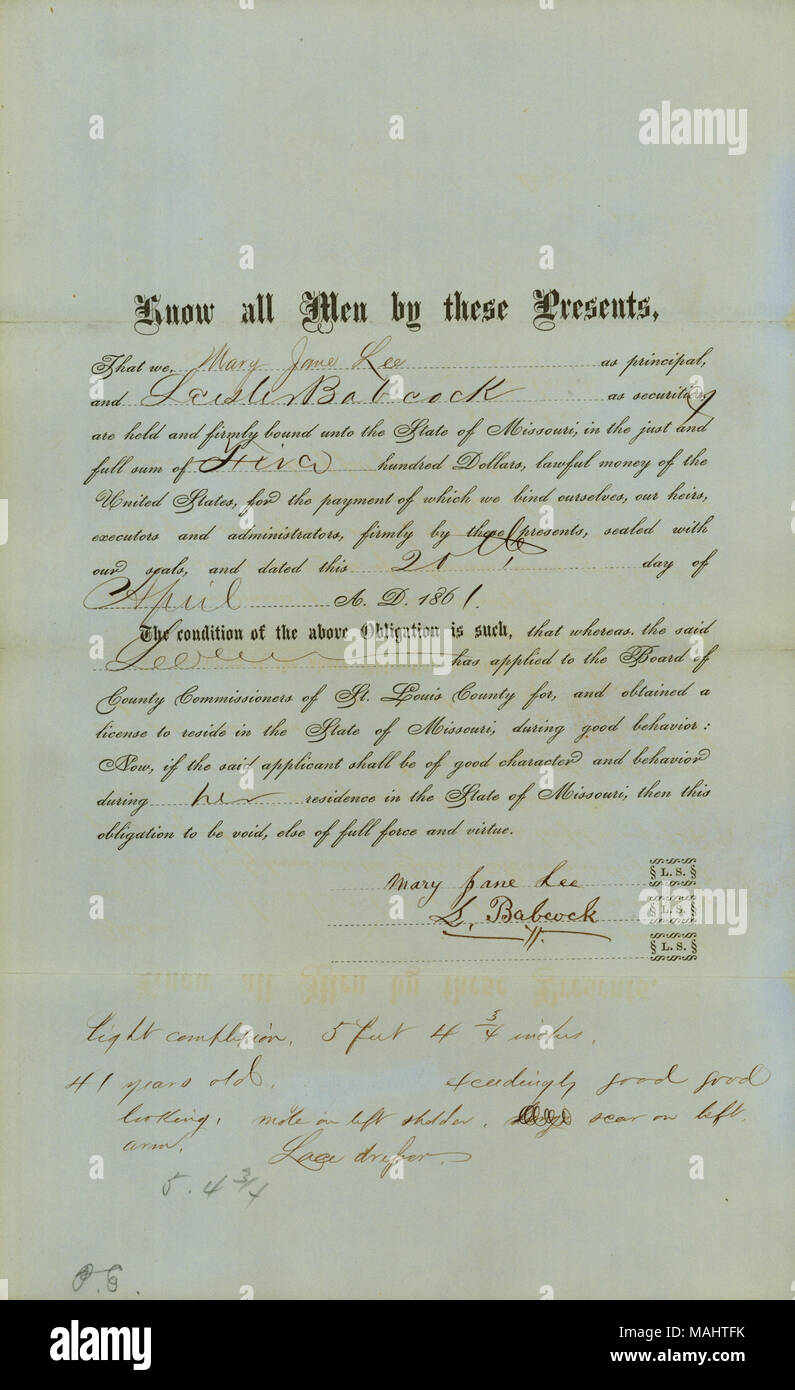 Know all Men by these Presents,
That we, Mary Jane Lee as principal,
and Leisler Babcock as security
are held and firmly bound unto the State of Missouri, in the just and
full sum of Five hundred Dollars, lawful money of the
United States, for the payment of which we bind ourselves, our heirs,
executors and administrators, firmly by these presents, sealed with
our seals, and dated this 20th day of
April A. D. 1861.
The condition of the above Obligation is such, that whereas, the said
has applied to the Board of
County Commissioners of St. Louis County for, and obtained a
license to reside in the State of Missouri, during good behavior:
Now, if the said applicant shall be of good character and behavior
during her residence in the State of Missouri, then this
obligation to be void, else of full force and virtue.
Mary Jane Lee § L. S. §
L. Babcock § L. S. §
§ L. S. §
light complexion, 5 feet 4 3/4 inches,
41 years old, exceedingly good good
looking, mole on left sholder, scar on left
arm, Lace dresser.
5. 4 3/4
alamy
Image ID: MAHTFK
www.alamy.com